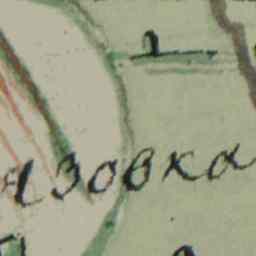 язовка